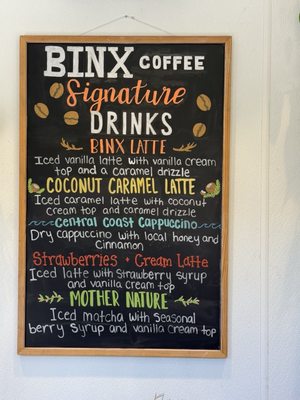 BINX COFFEE
Signature
DRINKS
BINX LATTE
Iced vanilla latte with vanilla cream
top and a caramel drizzle
COCONUT CARAMEL LATTE
Iced caramel latte with coconut
cream top and caramel drizzle
CENTRAL COAST CAPPUCCINO
Dry cappuccino with local honey and
Cinnamon
Strawberries + Cream Latte
Iced latte with Strawberry syrup
and vanilla cream top
MOTHER NATURE
Iced matcha with Seasonal
berry Syrup and vanilla cream top